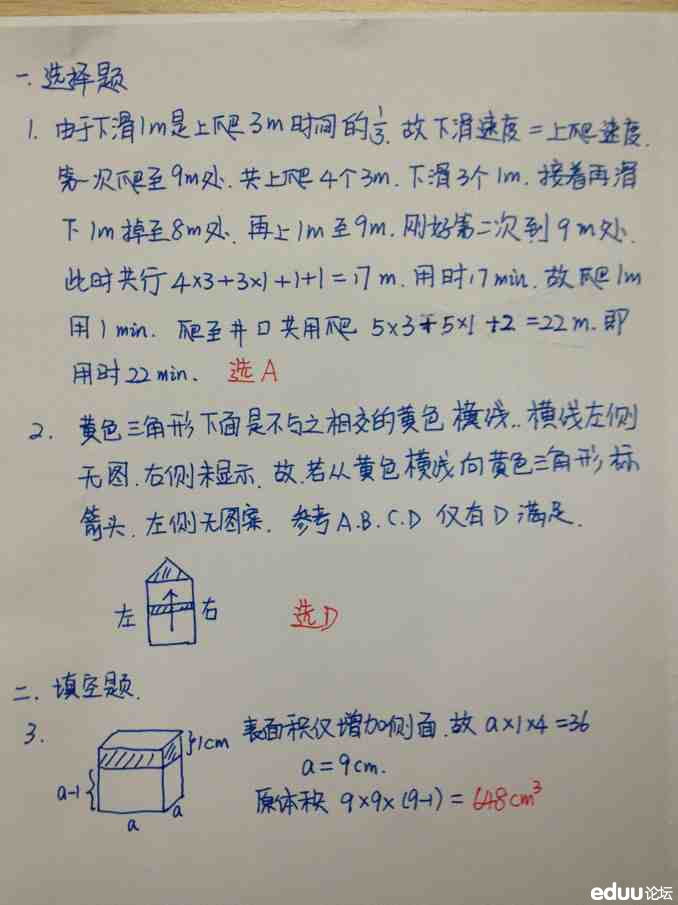 一. 选择题
1. 由于下滑1m是上爬3m时间的1/3. 故下滑速度=上爬速度.
第一次爬至9m处. 共上爬4个3m. 下滑3个1m. 接着再滑
下1m掉至8m处. 再上1m至9m. 刚好第二次到9m处.
此时共行4×3+3×1+1+1=17m. 用时17min. 故爬1m
用1min. 爬至井口共用爬 5×3+5×1+2=22m. 即
用时22min. 选A
2. 黄色三角形下面是不与之相交的黄色横线.. 横线左侧
无图. 右侧未显示. 故. 若从黄色横线向黄色三角形标
箭头. 左侧无图案. 参考A.B.C.D 仅有D满足.
左 右 选D
二. 填空题.
3. 1cm 表面积仅增加侧面. 故 a×1×4=36
a-1 a a a=9cm.
原体积 9×9×(9-1)=648cm³
eduu论坛